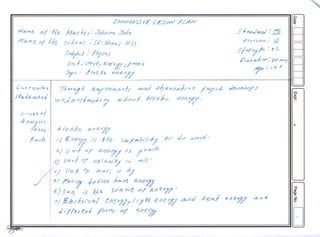 INNOVATIVE LESSON PLAN
Name of the teacher : Johnson John
Name of the school : St. Thomas HSS
Subject : Physics
Unit : Work, Energy, power
Topic : Kinetic energy
Standard : IX
Division : A
Strength : 42
Duration :
Age : 14+
Curricular Statement
Through experiments and observation pupil develops
understanding about kinetic energy.
Content Analysis
Terms
Kinetic energy
Facts
1) Energy is the capability to do work
2) Unit of energy is joule
3) Unit of velocity is m/s
4) Unit of mass is kg
5) Moving bodies have energy
6) Sun is the source of energy
7) Electrical energy, light energy and heat energy are
different forms of energy
Date
Expt.
Page No.